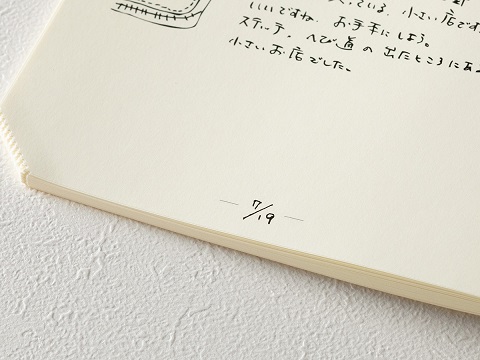 ている、小さい店です
いいですね、お手本にしよう。
ステッチ、へび道の出たところにあ
小さいお店でした。
7/19